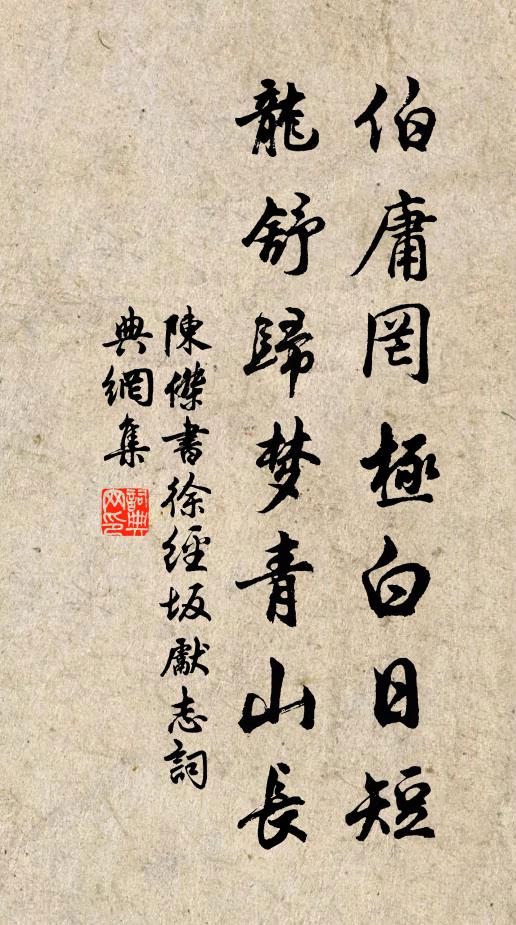 伯庸罔極白日短
龍舒歸梦青山長
陳傑書徐經坂獻志詞
典網集
詞典網印